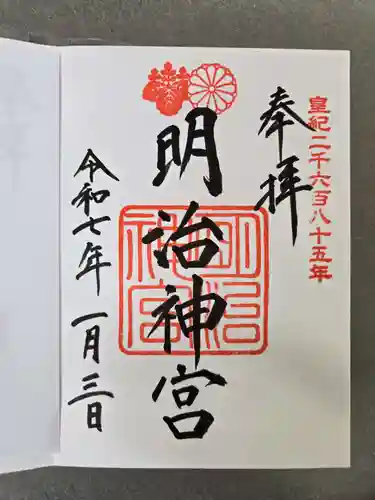 皇紀二千六百八十五年
奉拝
明治神宮
明治神宮
令和七年一月三日